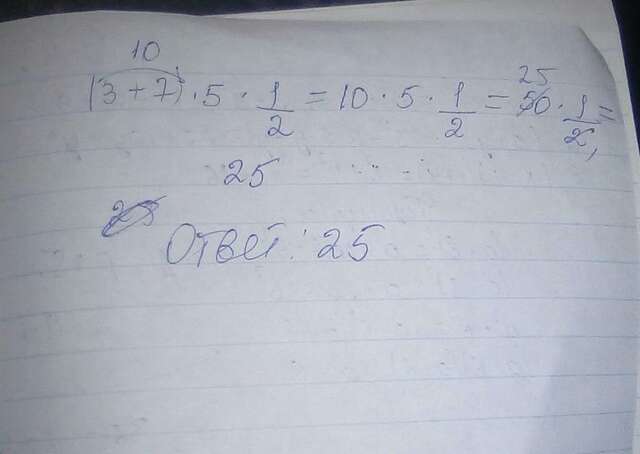 10
(3+7)·5·1/2=10·5·1/2=50·1/2=
25
25
Ответ: 25